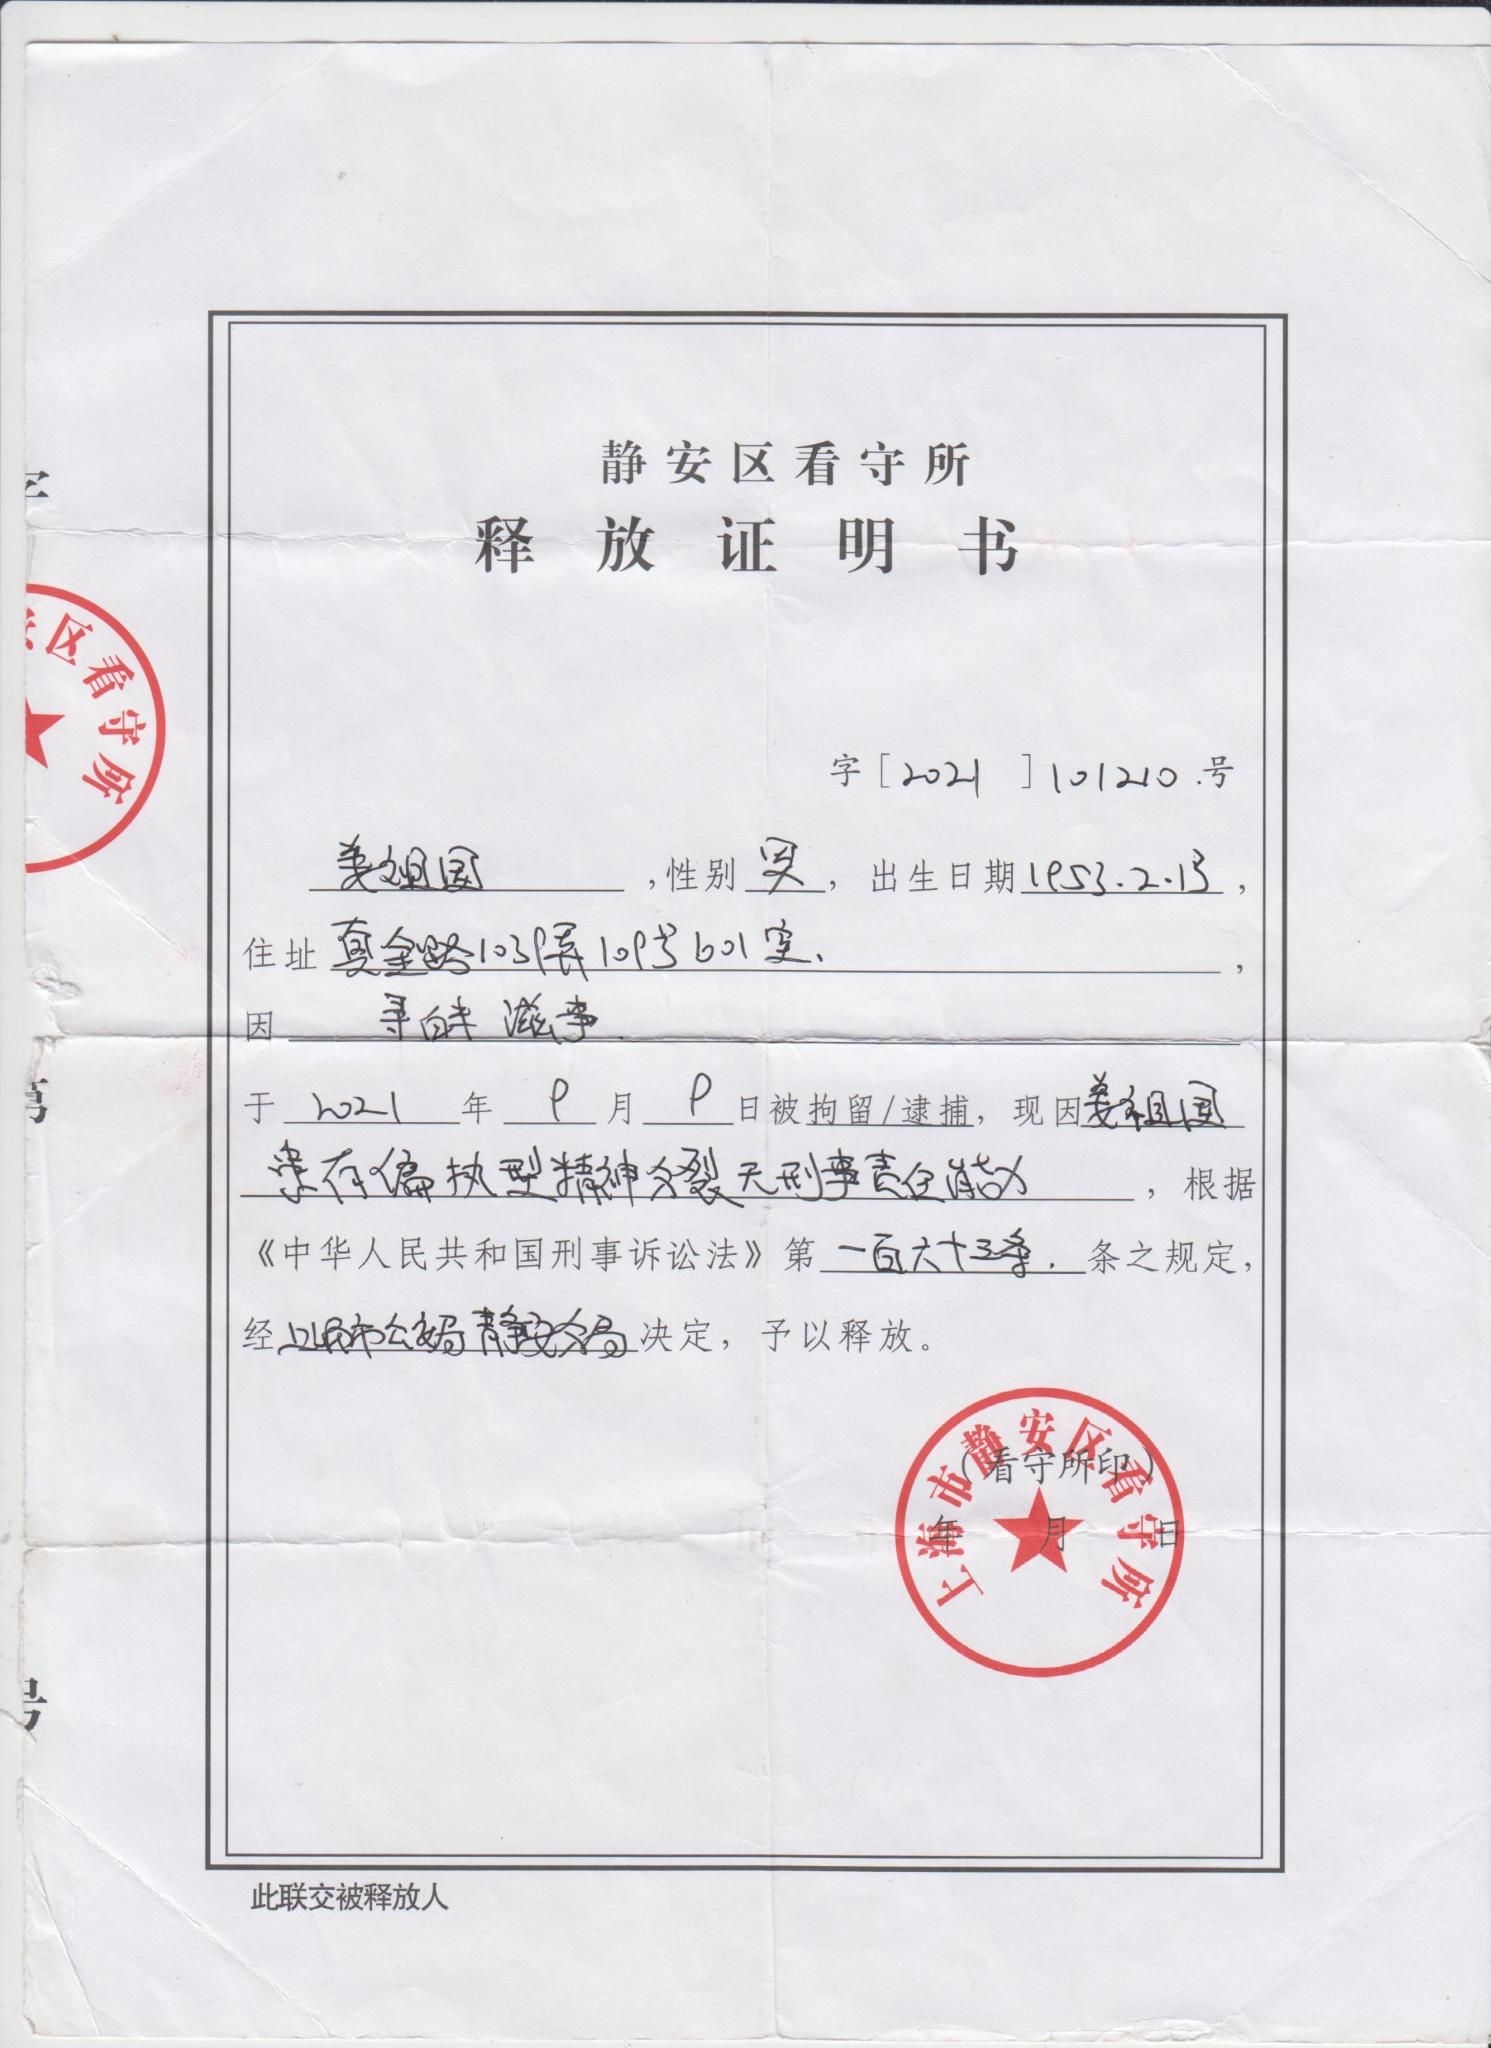 静安区看守所
释放证明书
字[2021]101210.号
姜祖国,性别男,出生日期1953.2.13,
住址真金路1039弄109号601室,
因 寻衅滋事.
于2021年9月9日被拘留/逮捕,现因姜祖国
患有偏执型精神分裂无刑事责任能力,根据
《中华人民共和国刑事诉讼法》第一百六十三条.条之规定,
经上海市公安局静安分局决定,予以释放。
(看守所印)
年 月 日
上海市静安区看守所
此联交被释放人
区看守所